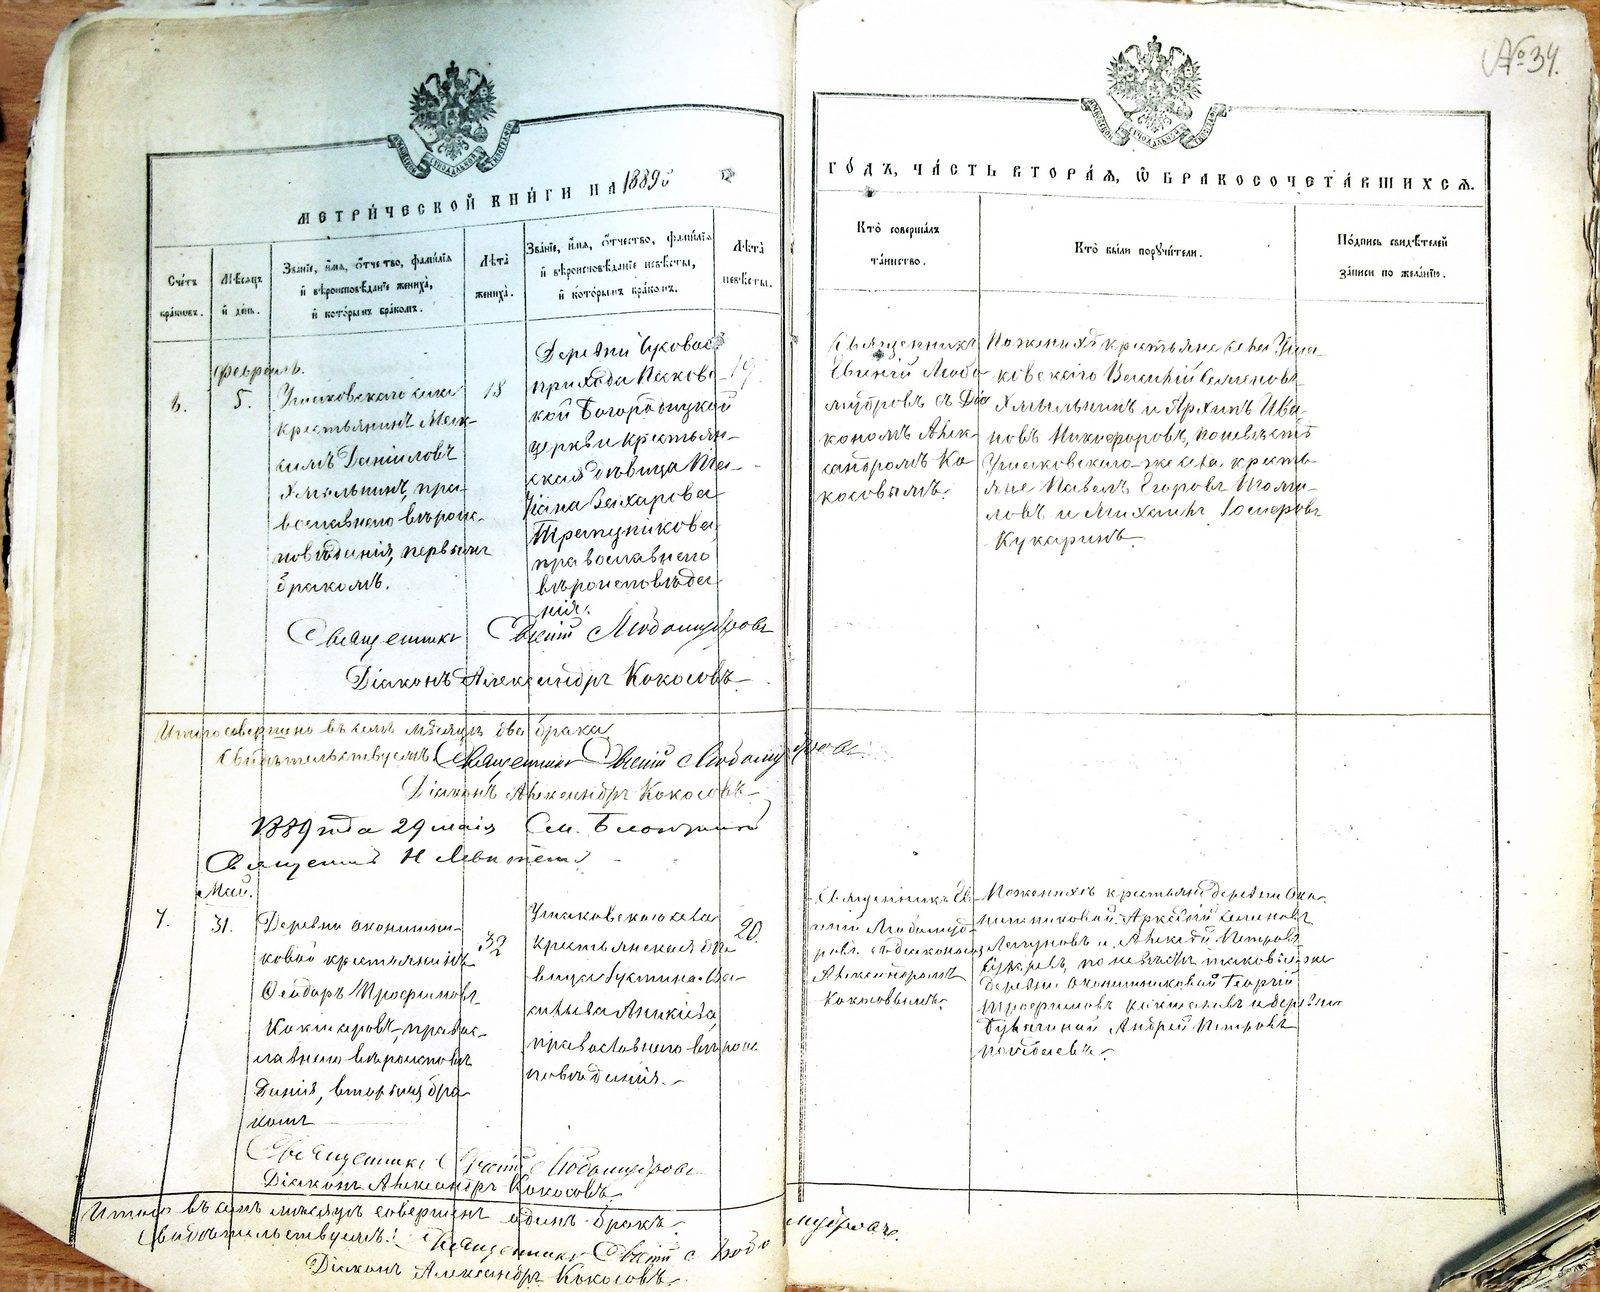 № 34.
МЕТРИЧЕСКОЙ КНИГИ НА 1889й
ГОДЪ, ЧАСТЬ ВТОРАЯ, Ѡ БРАКОСОЧЕТАВШИХСЯ.
Счетъ браковъ.
Мѣсяцъ и день.
Званіе, имя, отчество, фамилія
и вѣроисповѣданіе жениха,
и которымъ бракомъ.
Лѣта
жениха.
Званіе, имя, отчество, фамилія
и вѣроисповѣданіе невѣсты,
и которымъ бракомъ.
Лѣта
невѣсты.
Кто совершалъ
таинство.
Кто были поручители.
Подпись свидѣтелей
записи по желанію.
Февраль.
6.
5.
Ушаковскаго села
крестьянинъ Мак-
симъ Даниловъ
Хмѣльнинъ, пра-
вославнаго вѣроис-
повѣданія, первымъ
бракомъ.
18
Деревни
прихода
кой Богородицкой
церкви крестьян-
ская дѣвица Та-
тіана Захарова
православнаго
вѣроисповѣда
нія.
19.
Священникъ
Евгеній Любо
мудровъ съ Діа
кономъ Алек-
сандромъ Ко
косовымъ.
По женихѣ крестьяне села Уша-
ковскаго Василій Семеновъ
Хмѣльнинъ и Архипъ Ива-
новъ Никифоровъ, по невѣстѣ
Ушаковскаго-же села кресть-
яне Павелъ Егоровъ
ловъ и Михаилъ
Кукаринъ.
Священникъ Евгеній Любомудровъ
Діаконъ Александръ Кокосовъ.
Итого совершено въ семъ мѣсяцѣ два брака
Свидѣтельствуемъ: Священникъ Евгеній Любомудровъ.
Діаконъ Александръ Кокосовъ.
1889 года 29 мая См. Благочинный
Священникъ Н
Май.
7.
31.
Деревни
ковой крестьянинъ
Ѳеодоръ Трофимовъ
правос-
лавнаго вѣроисповѣ
данія, вторымъ бра
комъ
32
Ушаковскаго села
крестьянская дѣ
вица Іустина Ва-
сильева Аникіева,
православнаго вѣроис
повѣданія.
20.
Священникъ Ев-
геній Любомуд-
ровъ съ діакономъ
Александромъ
Кокосовымъ.
По женихѣ крестьяне деревни
Семеновъ
и Алексѣй Петровъ
по невѣстѣ таковые-же
деревни Георгій
Трофимовъ и деревни
Андрей Петровъ
Священникъ Евгеній Любомудровъ
Діаконъ Александръ Кокосовъ.
Итого въ семъ мѣсяцѣ совершенъ одинъ бракъ.
Свидѣтельствуемъ: Священникъ Евгеній Любомудровъ.
Діаконъ Александръ Кокосовъ.